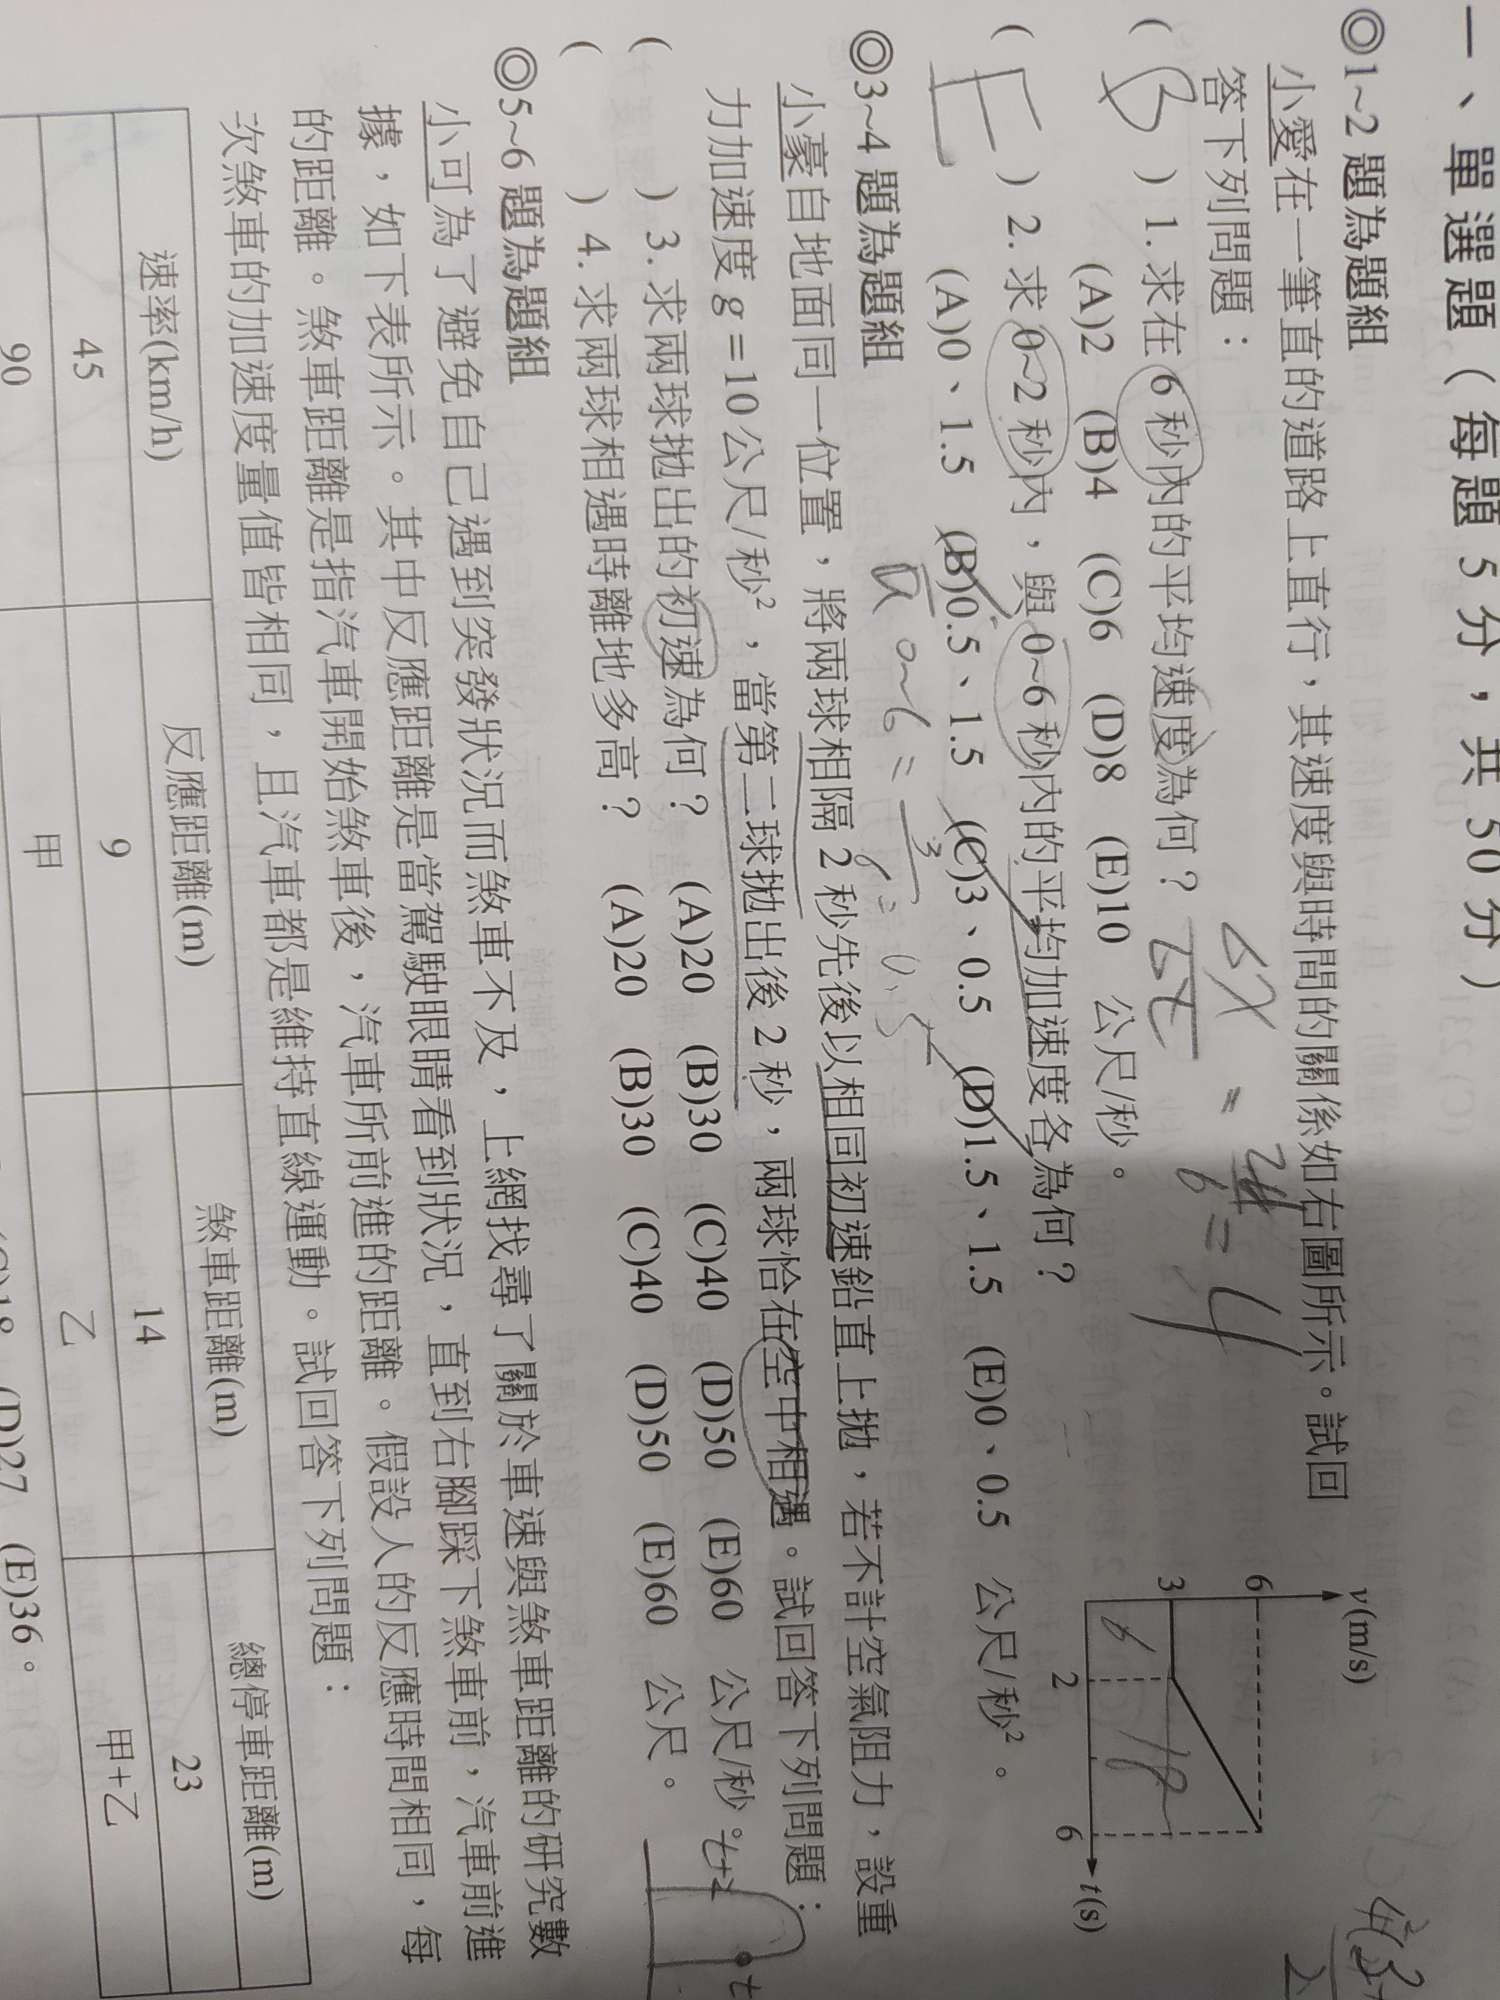 一、單選題(每題 5 分,共 50 分)
◎1~2 題為題組
小愛在一筆直的道路上直行,其速度與時間的關係如右圖所示。試回
答下列問題:
( B ) 1. 求在 6 秒內的平均速度為何?
(A)2 (B)4 (C)6 (D)8 (E)10 公尺/秒。
( E ) 2. 求 0~2 秒內,與 0~6 秒內的平均加速度各為何?
(A)0、1.5 (B)0.5、1.5 (C)3、0.5 (D)1.5、1.5 (E)0、0.5 公尺/秒²。
v(m/s)
6
3
2
6
t(s)
6
18
= 24/6 = 4
a 0~6 = 3/6 = 0.5
◎3~4 題為題組
小豪自地面同一位置,將兩球相隔 2 秒先後以相同初速鉛直上拋,若不計空氣阻力,設重
力加速度 g = 10 公尺/秒²,當第二球拋出後 2 秒,兩球恰在空中相遇。試回答下列問題:
( ) 3. 求兩球拋出的初速為何? (A)20 (B)30 (C)40 (D)50 (E)60 公尺/秒。
( ) 4. 求兩球相遇時離地多高? (A)20 (B)30 (C)40 (D)50 (E)60 公尺。
t+2
t
◎5~6 題為題組
小可為了避免自己遇到突發狀況而煞車不及,上網找尋了關於車速與煞車距離的研究數
據,如下表所示。其中反應距離是當駕駛眼睛看到狀況,直到右腳踩下煞車前,汽車前進
的距離。煞車距離是指汽車開始煞車後,汽車所前進的距離。假設人的反應時間相同,每
次煞車的加速度量值皆相同,且汽車都是維持直線運動。試回答下列問題:
速率(km/h) 反應距離(m) 煞車距離(m) 總停車距離(m)
45 9 14 23
90 甲 乙 甲+乙
(C)18 (D)27 (E)36。